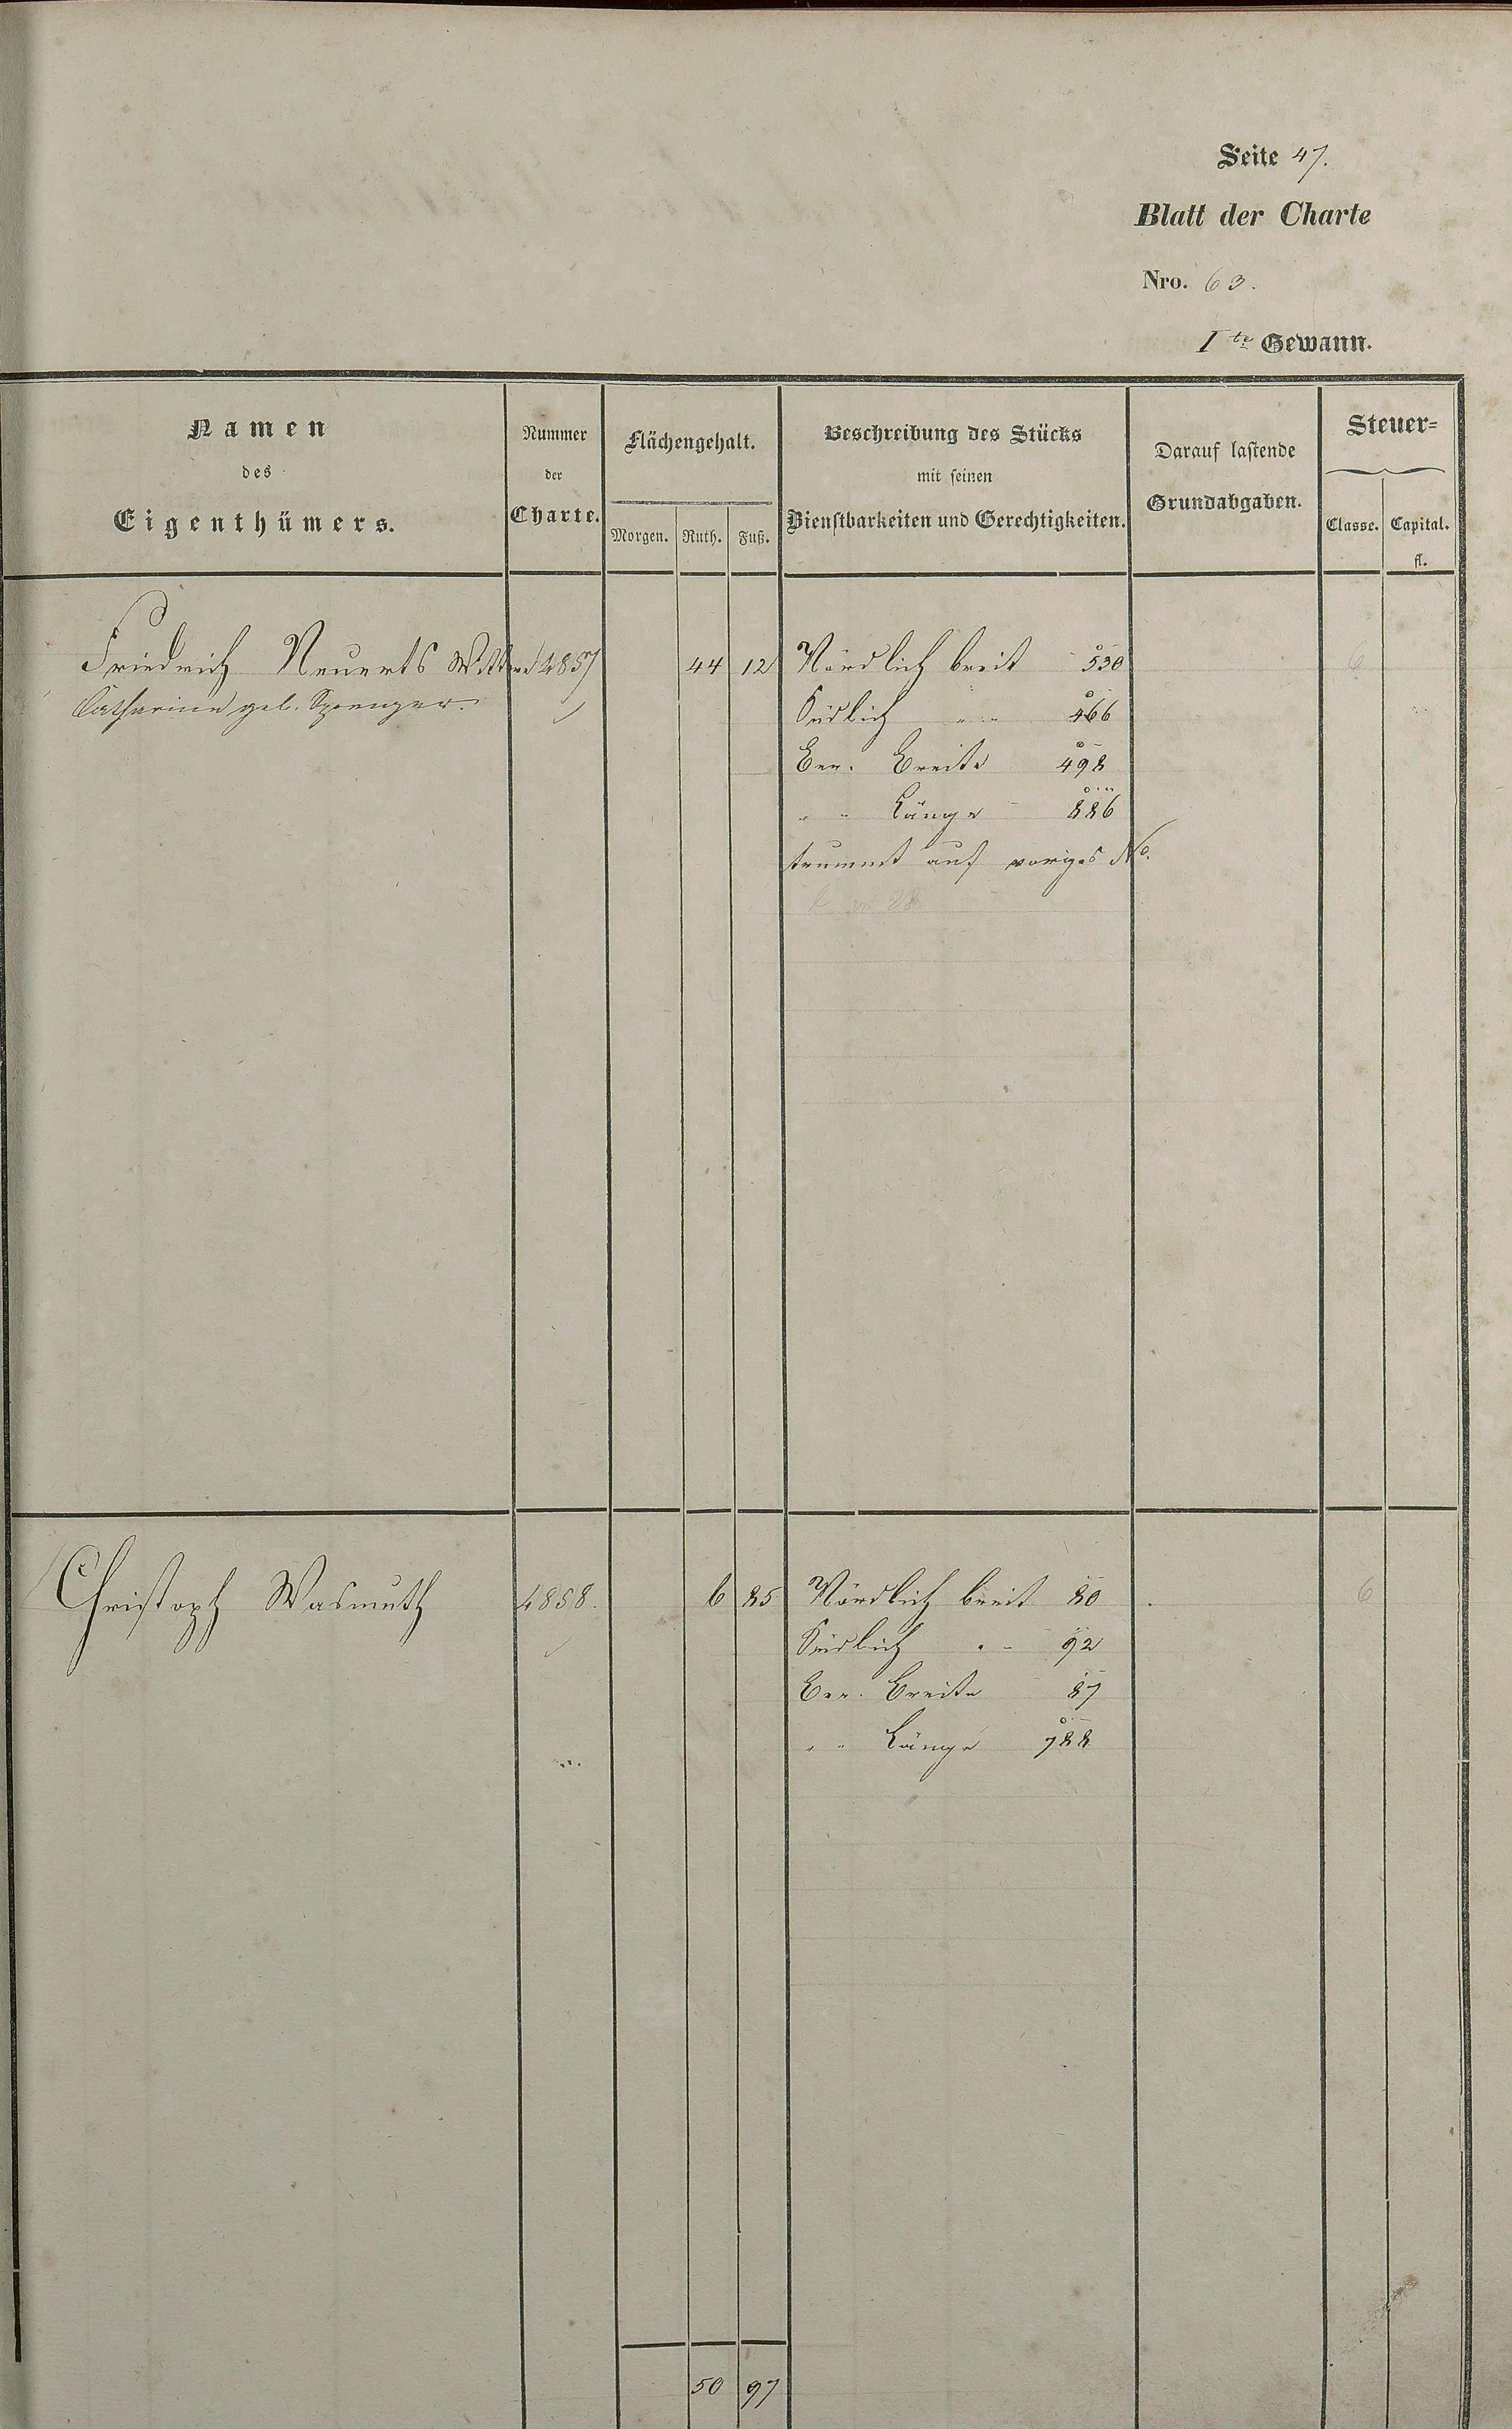 Seite 47.
Blatt der Charte
Nro. 63.
I te Gewann.
Namen des Eigenthümers.
Nummer der Charte.
Flächengehalt.
Morgen. Ruth. Fuß.
Beschreibung des Stücks mit seinen Dienstbarkeiten und Gerechtigkeiten.
Darauf lastende Grundabgaben.
Steuer=
Classe. Capital.
fl.
Friedrich Neuerts Wittwe 4857 44 12 Nördlich breit 530 6
Catharine geb. Sprenger. Südlich " " 466
Ber. Breite 498
" " Länge 886
trummt auf voriges No.
Christoph Wasmuth 4858. 6 85 Nördlich breit 80 6
Südlich " " 92
Ber. Breite 87
" " Länge 788
50 97